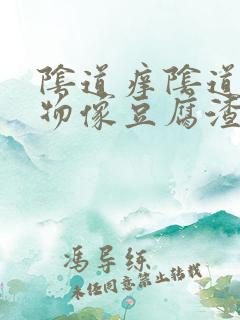 陰道痒陰道
物像豆腐渣
馮导絲
未经同意禁止转载